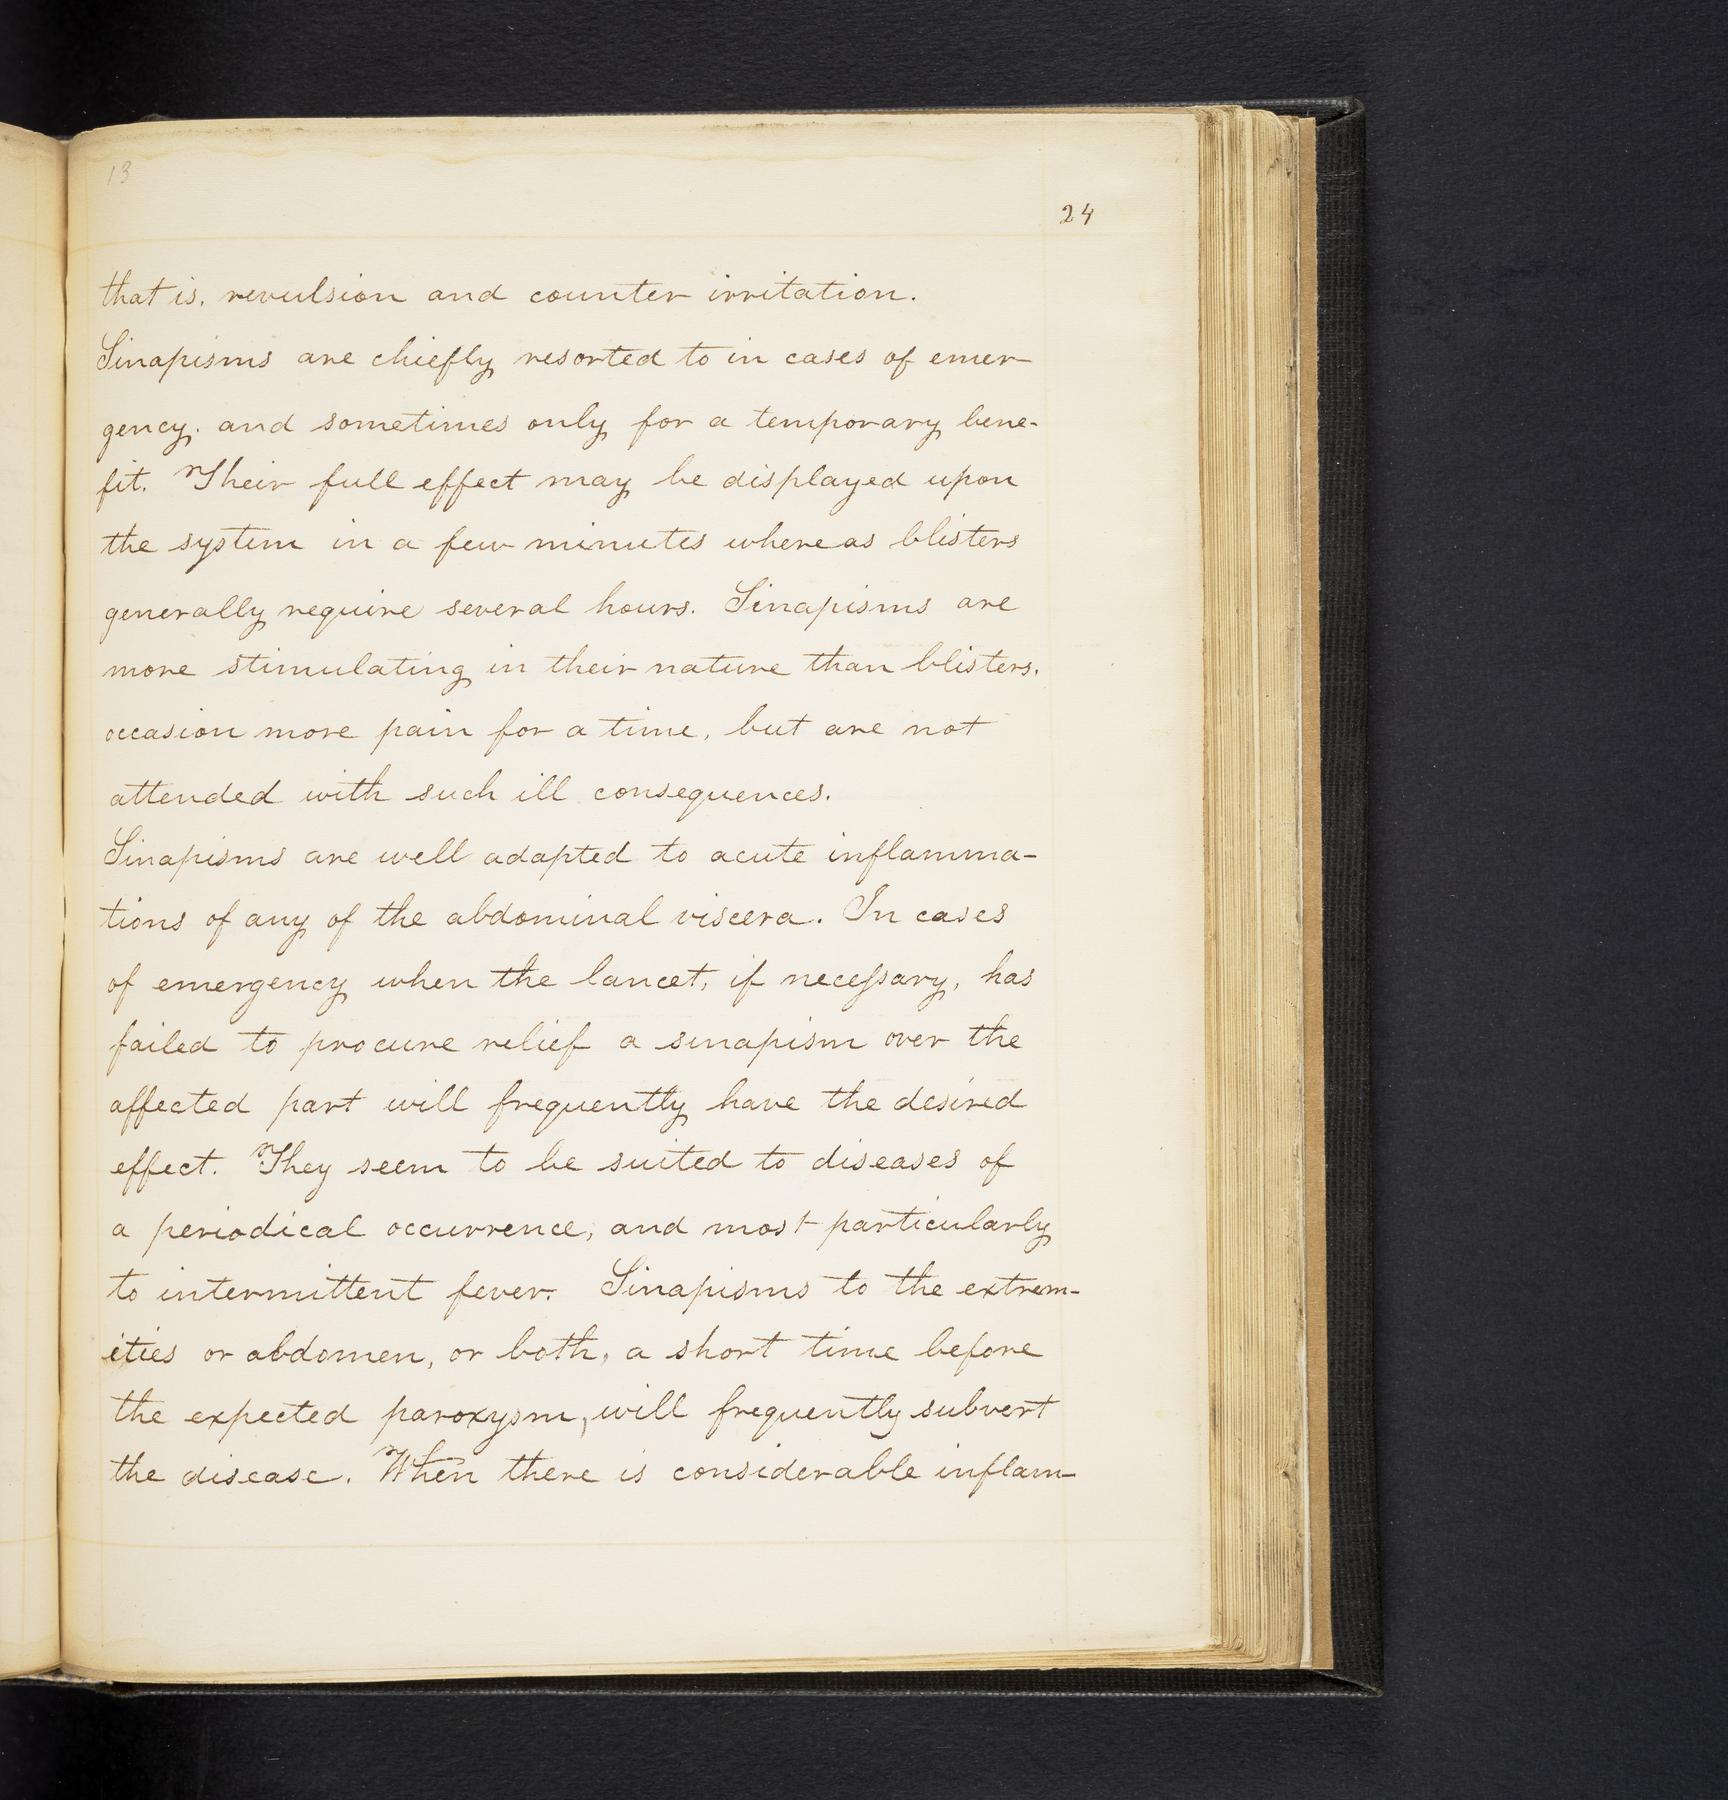 13
24
that is, revulsion and counter irritation.
Sinapisms are chiefly resorted to in cases of emer-
gency, and sometimes only for a temporary bene-
fit. Their full effect may be displayed upon
the system in a few minutes whereas blisters
generally require several hours. Sinapisms are
more stimulating in their nature than blisters,
occasion more pain for a time, but are not
attended with such ill consequences.
Sinapisms are well adapted to acute inflamma-
tions of any of the abdominal viscera. In cases
of emergency when the lancet, if neceſsary, has
failed to procure relief a sinapism over the
affected part will frequently have the desired
effect. They seem to be suited to diseases of
a periodical occurrence, and most particularly
to intermittent fever. Sinapisms to the extrem-
ities or abdomen, or both, a short time before
the expected paroxysm, will frequently subvert
the disease. When there is considerable inflam-